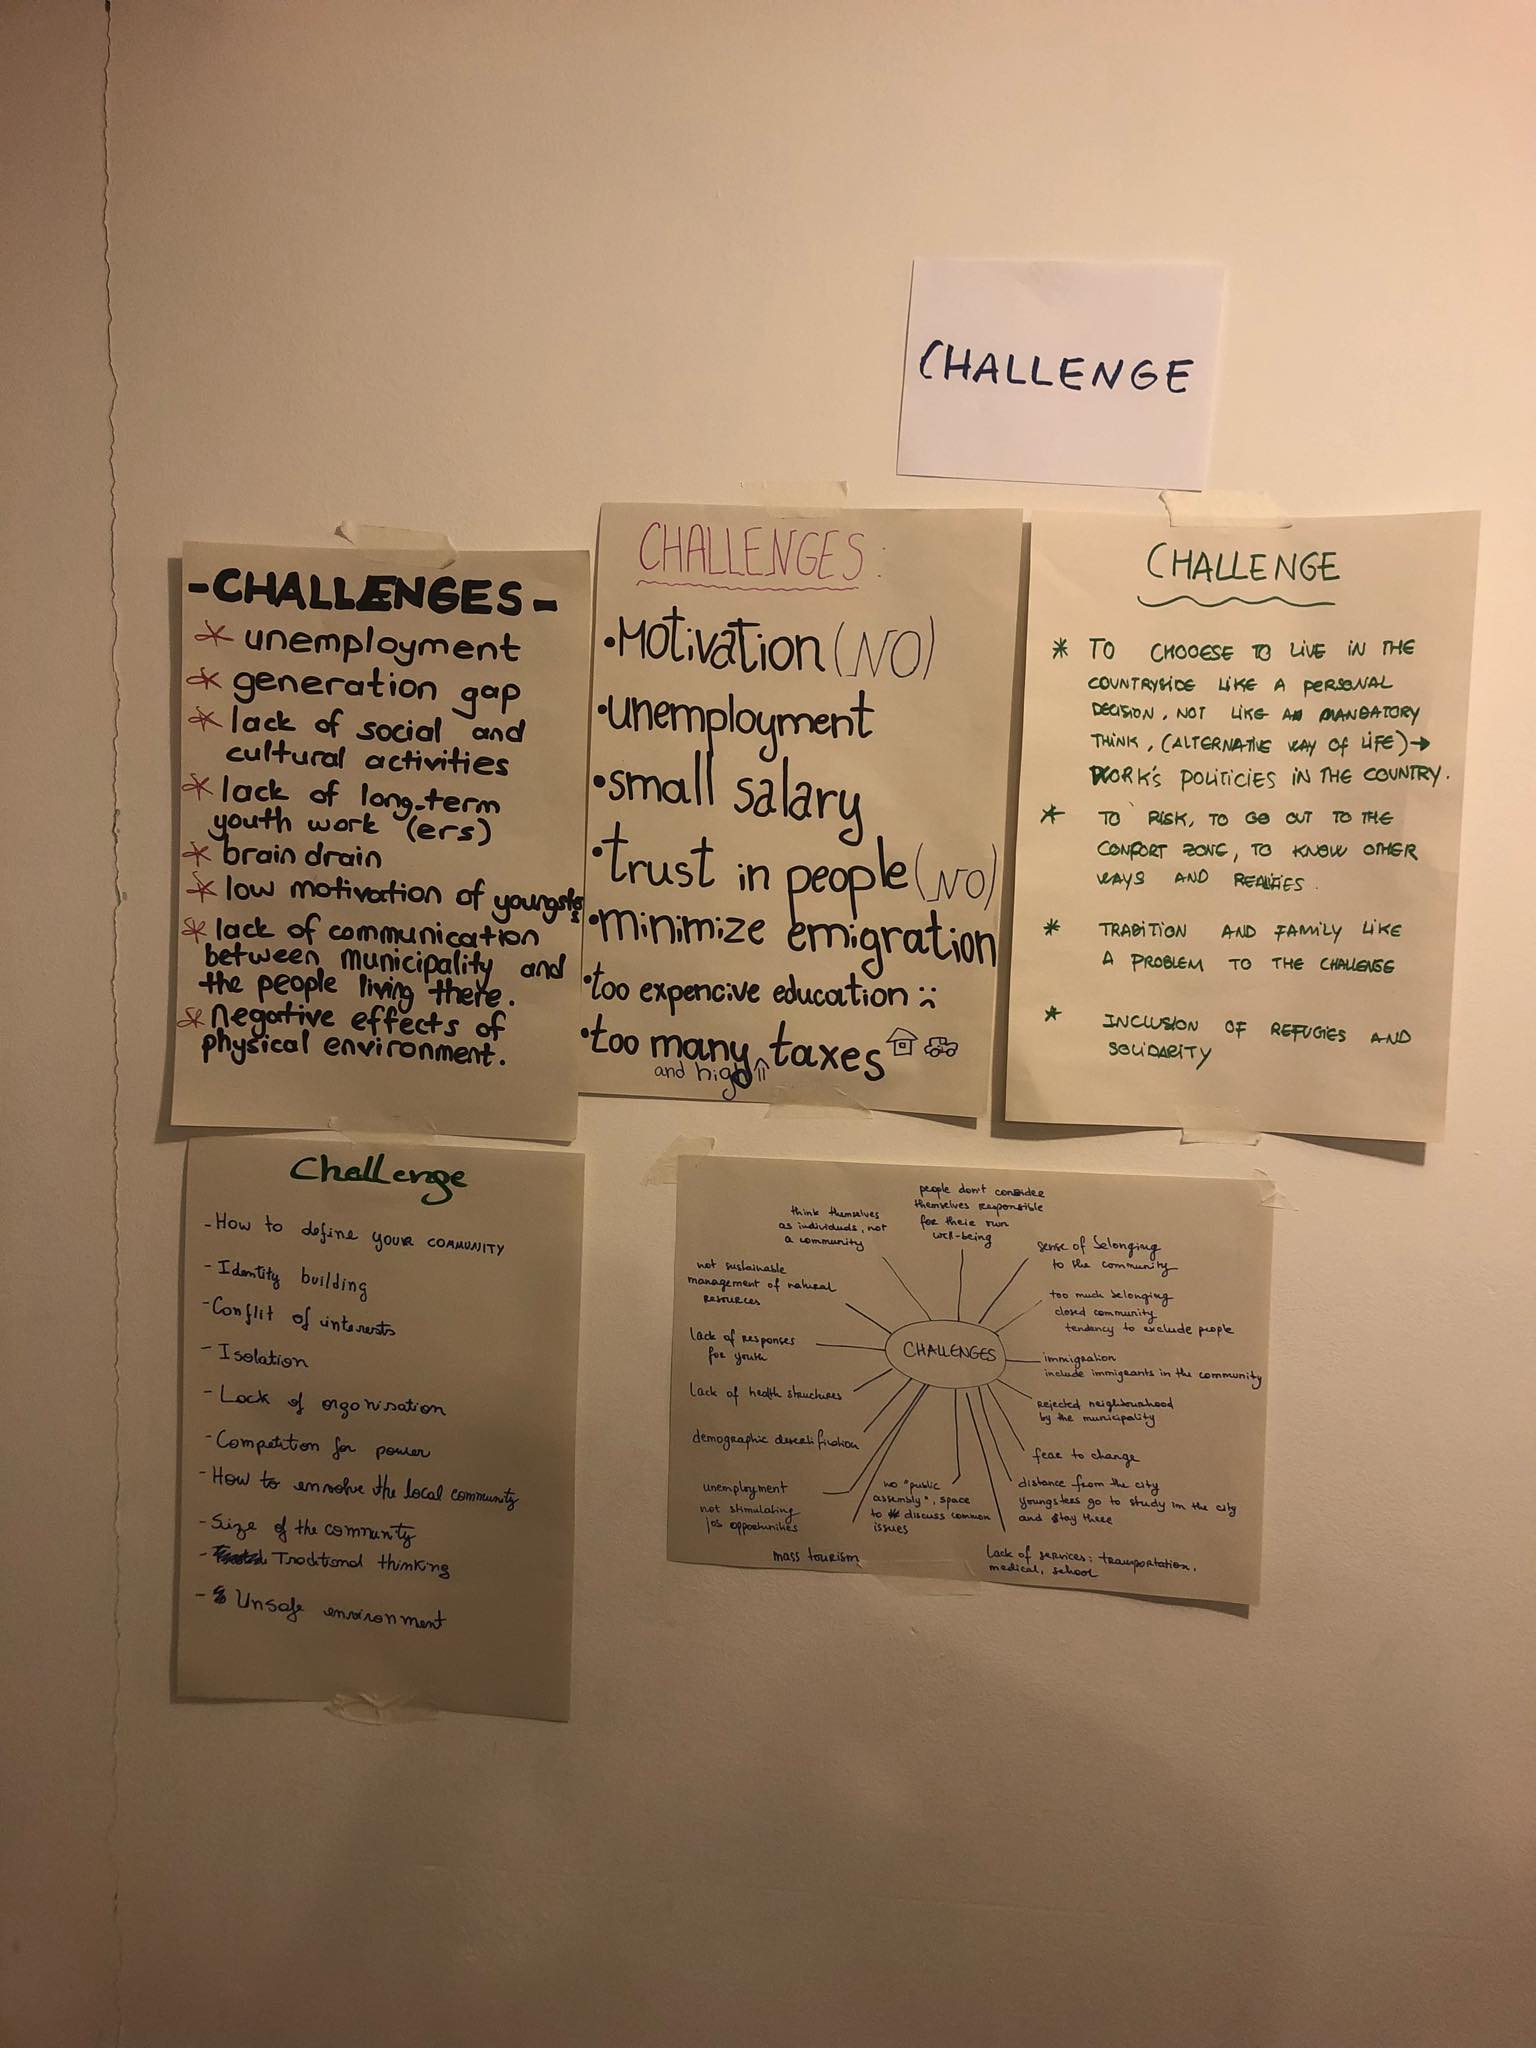 CHALLENGE
-CHALLENGES-
* unemployment
* generation gap
* lack of social and
cultural activities
* lack of long-term
youth work (ers)
* brain drain
* low motivation of youngsters
* lack of communication
between municipality and
the people living there.
* negative effects of
physical environment.
CHALLENGES:
•Motivation (NO)
•unemployment
•small salary
•trust in people (NO)
•minimize emigration
•too expencive education :(
•too many taxes
and high
CHALLENGE
* TO CHOOESE TO LIVE IN THE
COUNTRYSIDE LIKE A PERSONAL
DECISION, NOT LIKE AN MANDATORY
THINK, (ALTERNATIVE WAY OF LIFE) →
WORK'S POLITICIES IN THE COUNTRY.
* TO RISK, TO GO OUT TO THE
CONFORT ZONE, TO KNOW OTHER
WAYS AND REALITIES.
* TRADITION AND FAMILY LIKE
A PROBLEM TO THE CHALLENGE
* INCLUSION OF REFUGIES AND
SOLIDARITY
Challenge
- How to define your COMMUNITY
- Identity building
- Conflit of interests
- Isolation
- Lack of organisation
- Competition for power
- How to envolve the local community
- Size of the community
- Traditional thinking
- Unsafe environment
CHALLENGES
people don't consider
themselves responsible
for their own
well-being
think themselves
as individuals, not
a community
sense of belonging
to the community
not sustainable
management of natural
resources
too much belonging
closed community
tendency to exclude people
lack of responses
for youth
immigration
include immigrants in the community
lack of health structures
rejected neighbourhood
by the municipality
demographic desertification
fear to change
unemployment
not stimulating
job opportunities
no "public
assembly", space
to discuss common
issues
distance from the city
youngsters go to study in the city
and stay there
mass tourism
lack of services: transportation,
medical, school